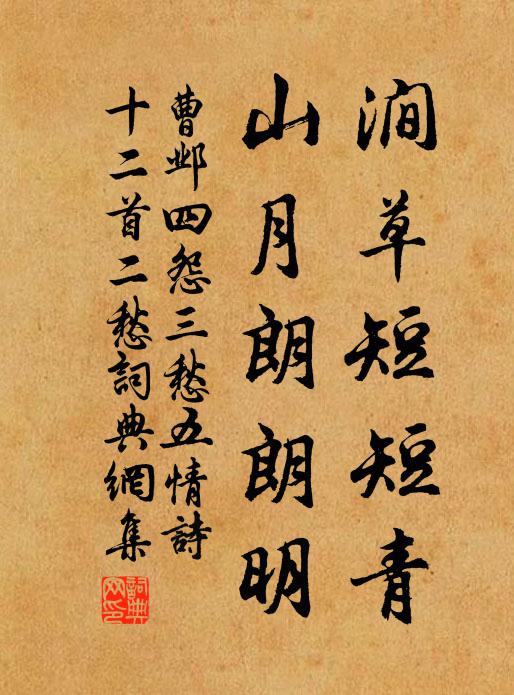 澗草短短青
山月朗朗明
曹邺四怨三愁五情詩
十二首二愁詞典網集
詞典
网印